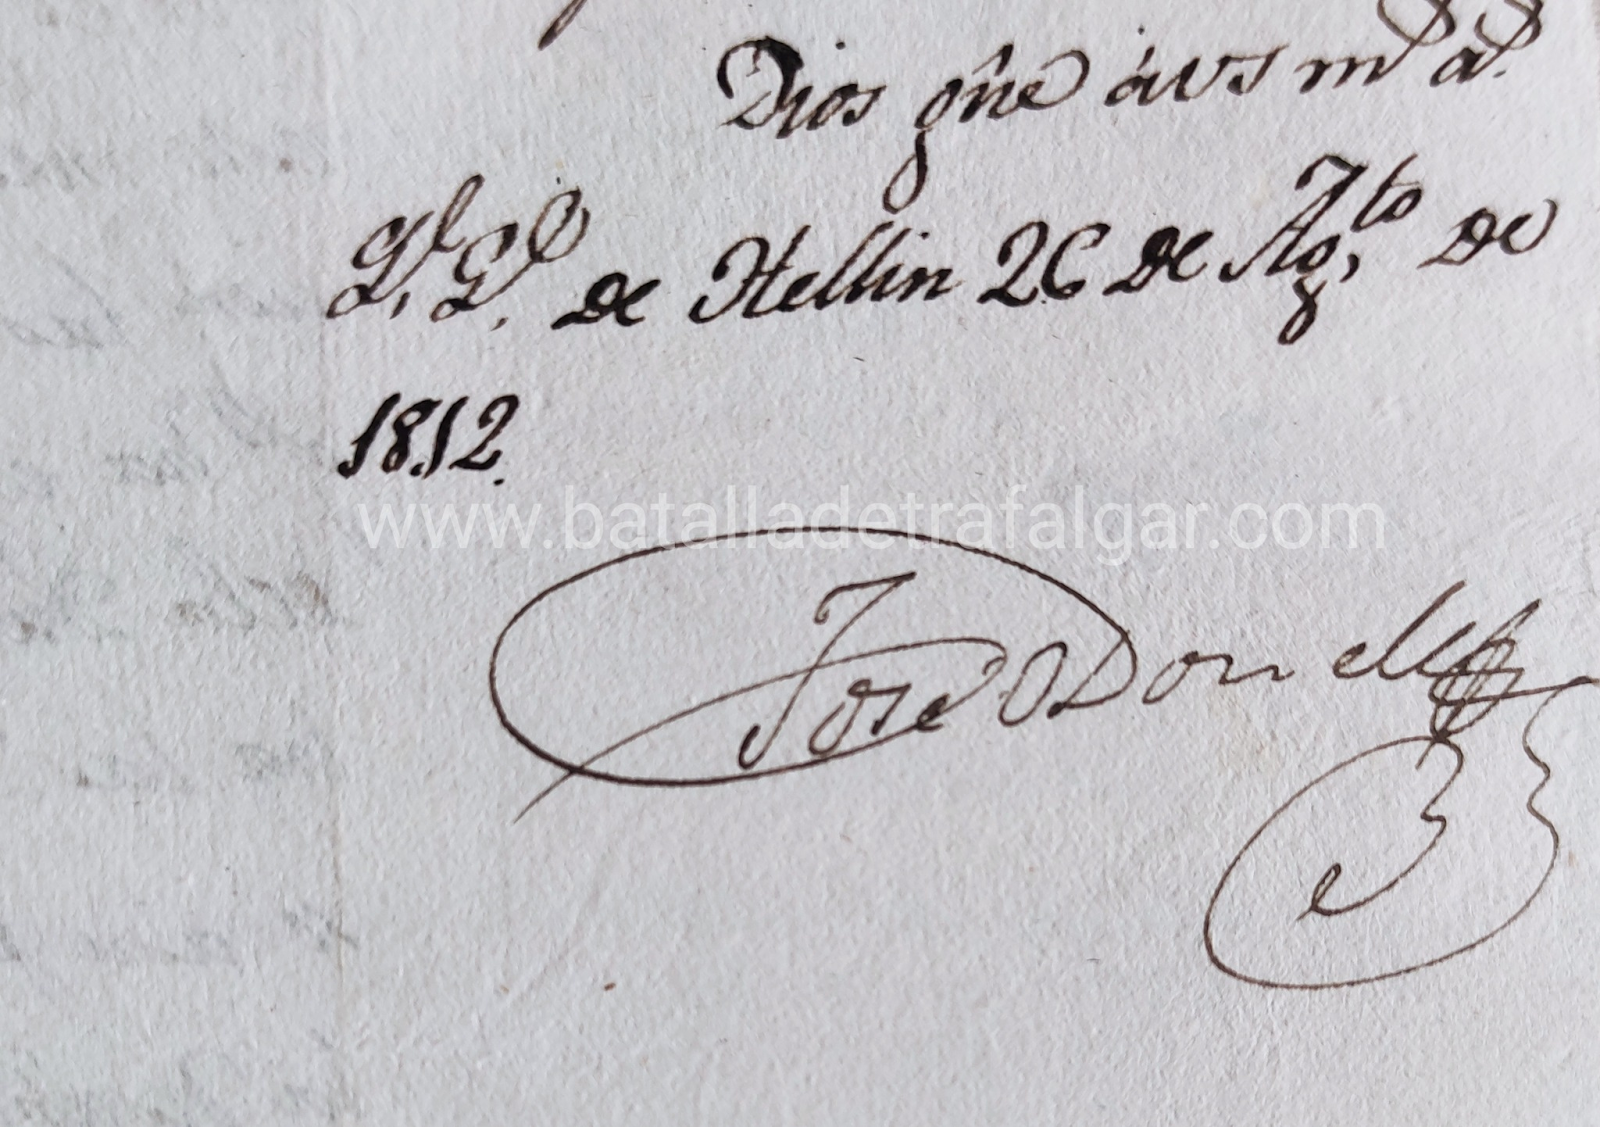 Dios gũe á vs ms as.
Ql. Gl. de Hellin 26 de Agto de
1812.
www.batalladetrafalgar.com
José O Donell